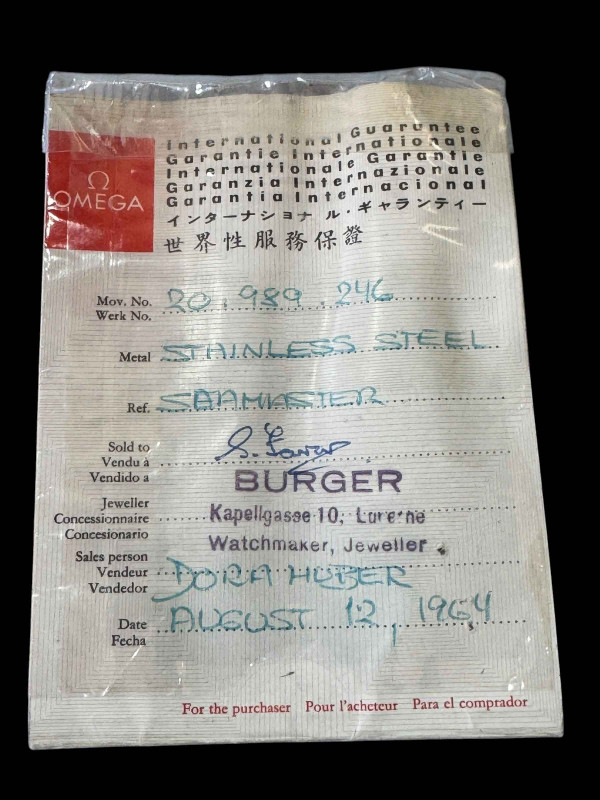 International Guarantee
Garantie Internationale
Internationale Garantie
Garanzia Internazionale
Garantia Internacional
インターナショナル・ギャランティー
世界性服務保證
Ω
OMEGA
Mov. No. 20.989.246
Werk No.
Metal STAINLESS STEEL
Ref. SEAMASTER
Sold to
Vendu à
Vendido a
BURGER
Jeweller
Concessionnaire Kapellgasse 10, Lucerne
Concesionario
Watchmaker, Jeweller
Sales person
Vendeur DORA HUBER
Vendedor
Date AUGUST 12, 1964
Fecha
For the purchaser Pour l'acheteur Para el comprador